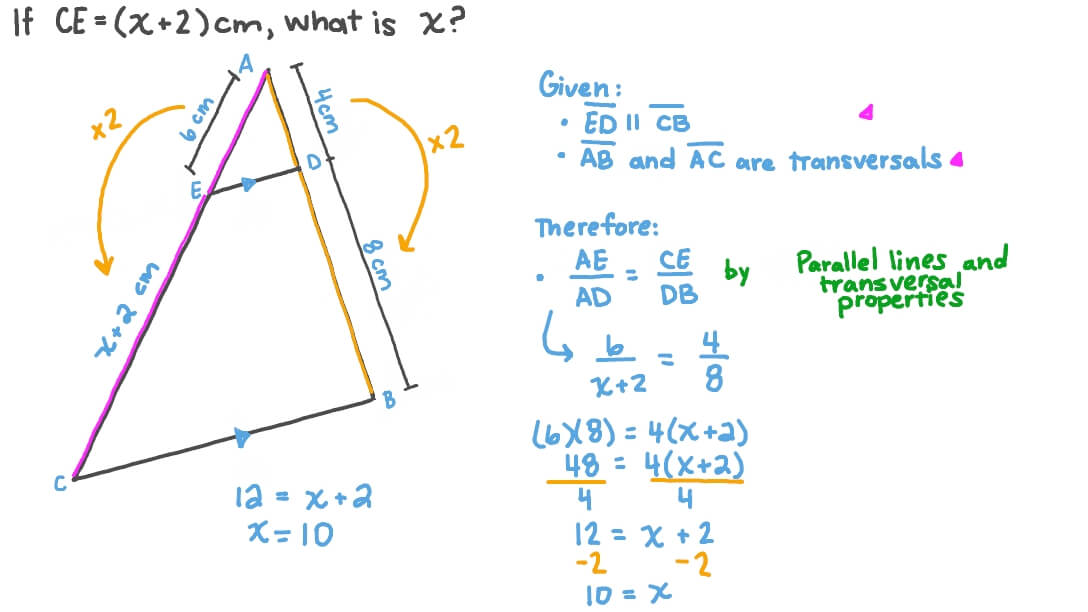 If CE = (x+2)cm, what is x?
A
6 cm
4cm
x2
x2
D
E
8 cm
x+2 cm
B
C
12 = x + 2
x = 10
Given:
• ED || CB
• AB and AC are transversals
Therefore:
• AE/AD = CE/DB by Parallel lines and transversal properties
6/x+2 = 4/8
(6)(8) = 4(x+2)
48 = 4(x+2)
4 4
12 = x + 2
-2 -2
10 = x